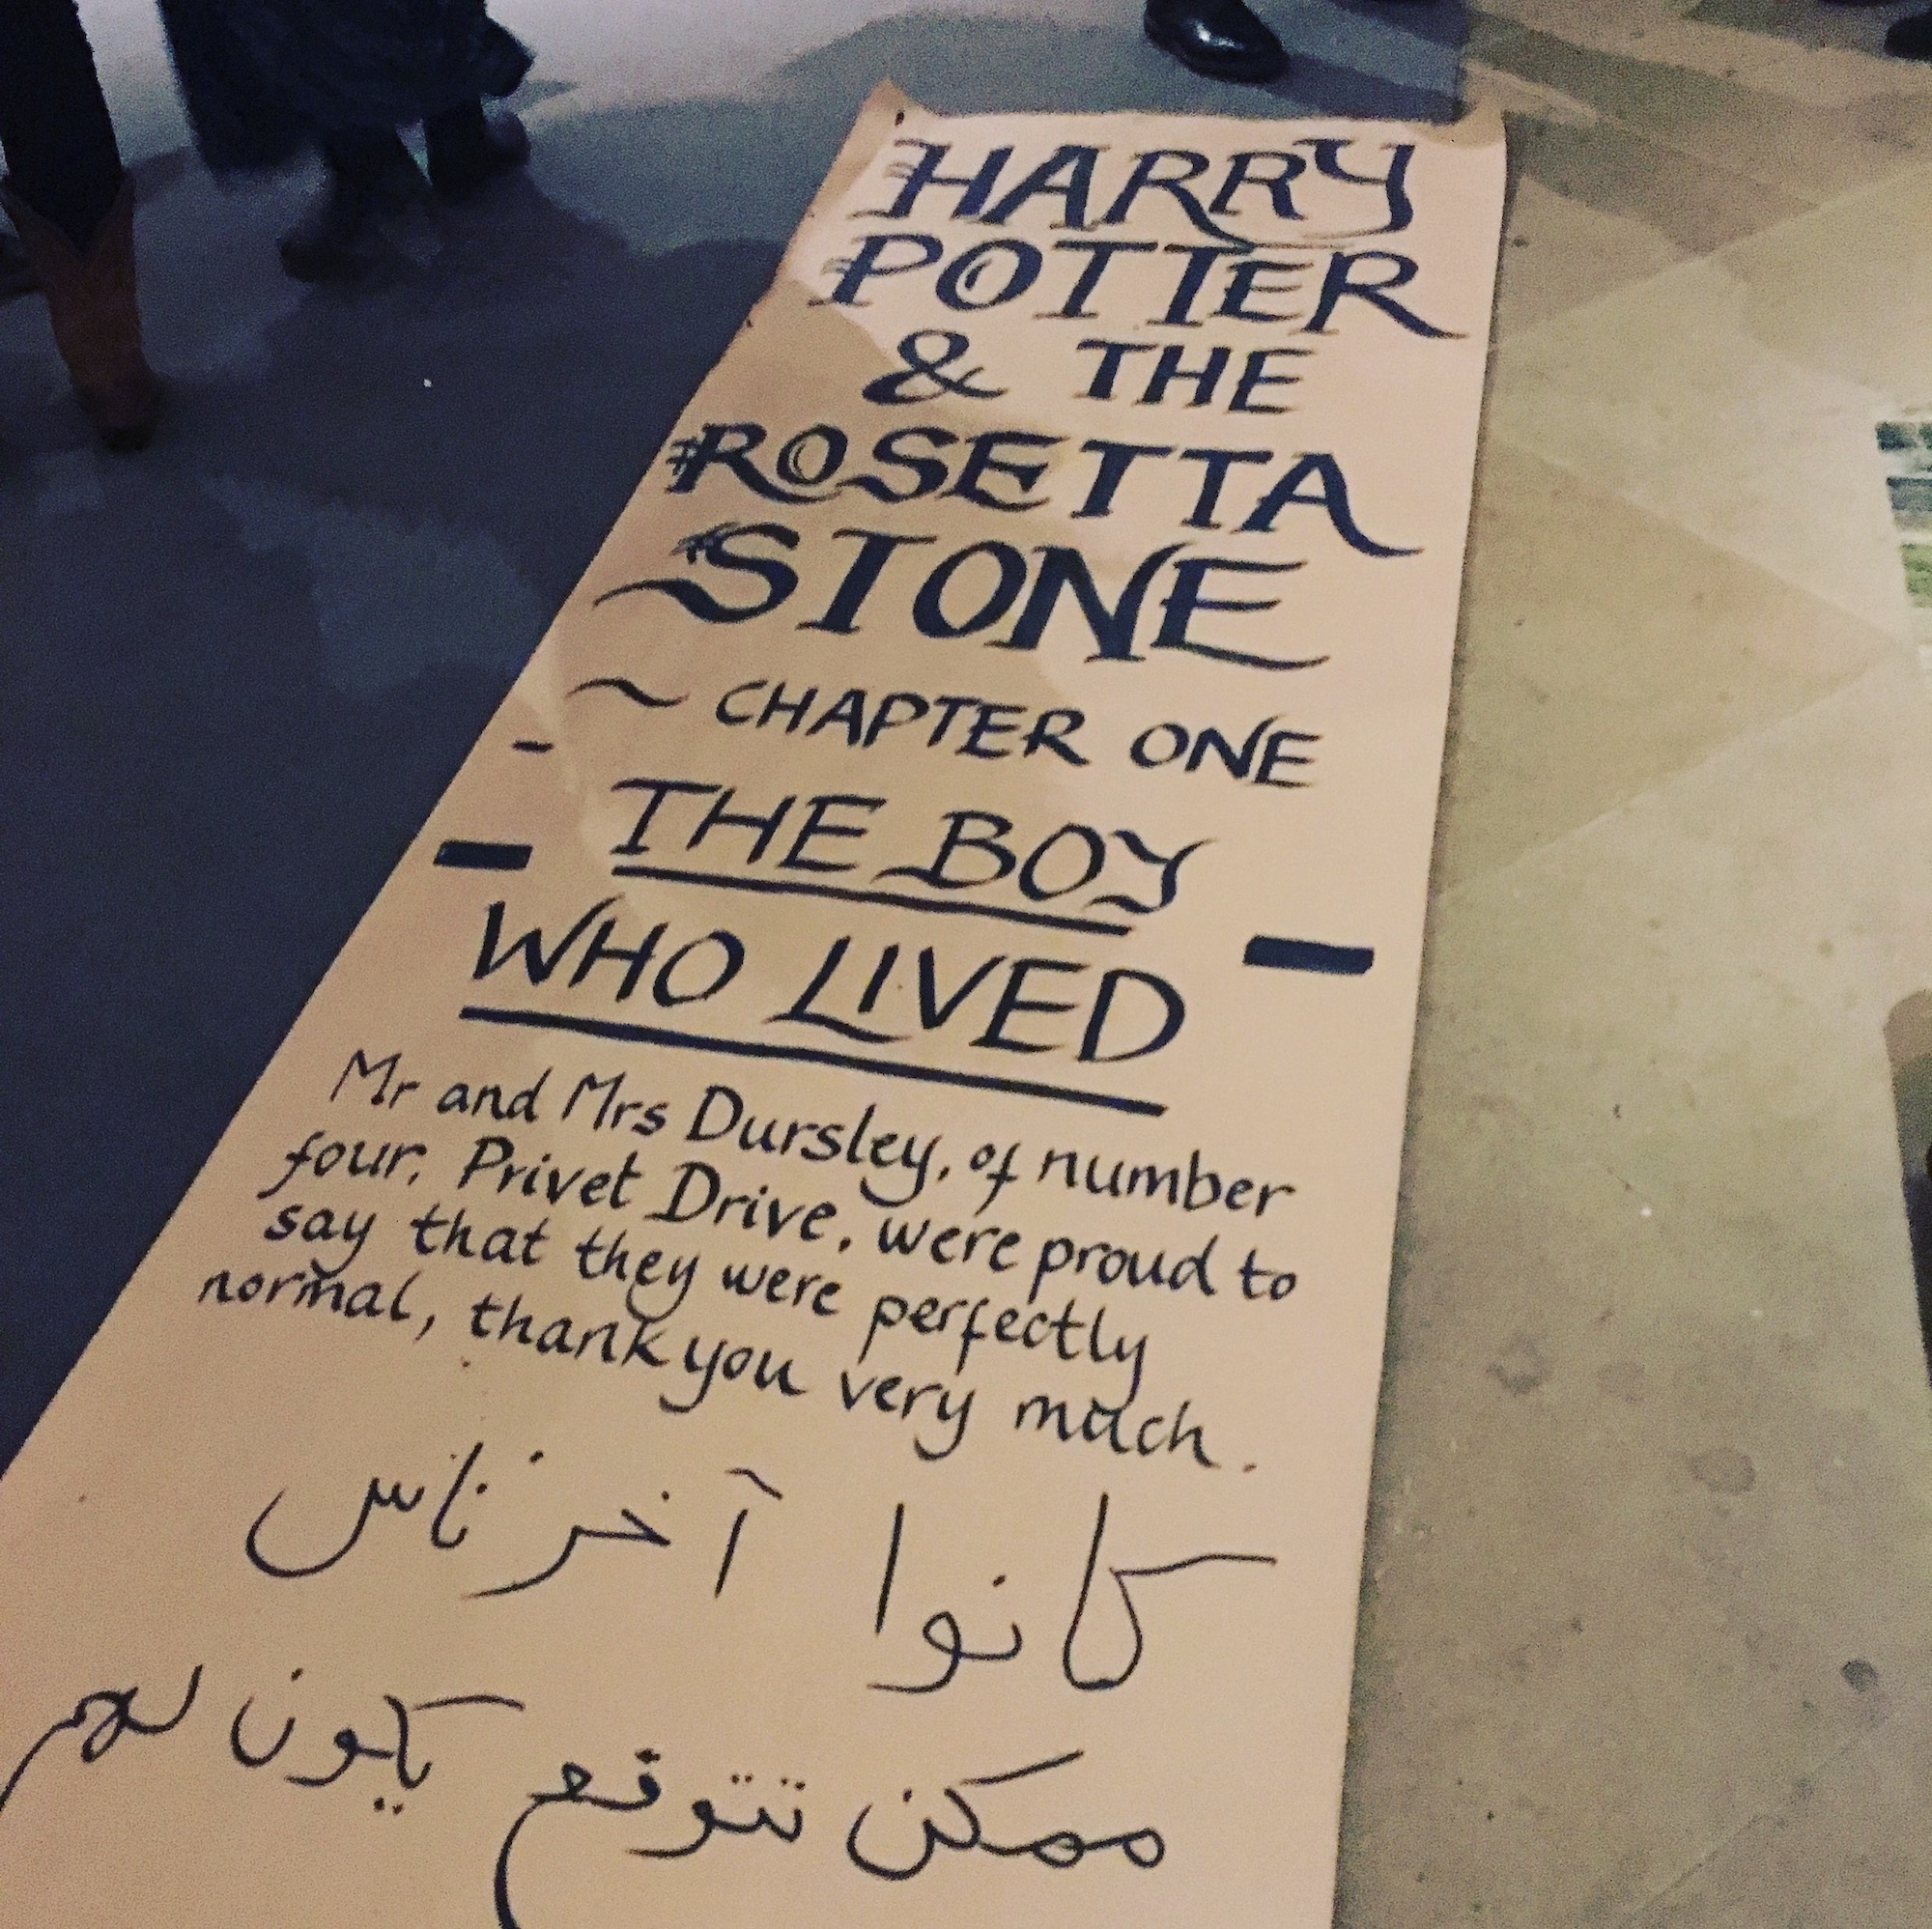 HARRY
POTTER
& THE
ROSETTA
STONE
~ CHAPTER ONE
-
THE BOY
- WHO LIVED -
Mr and Mrs Dursley, of number
four, Privet Drive, were proud to
say that they were perfectly
normal, thank you very much.
كانوا آخر ناس
ممكن تتوقع يكون لهم